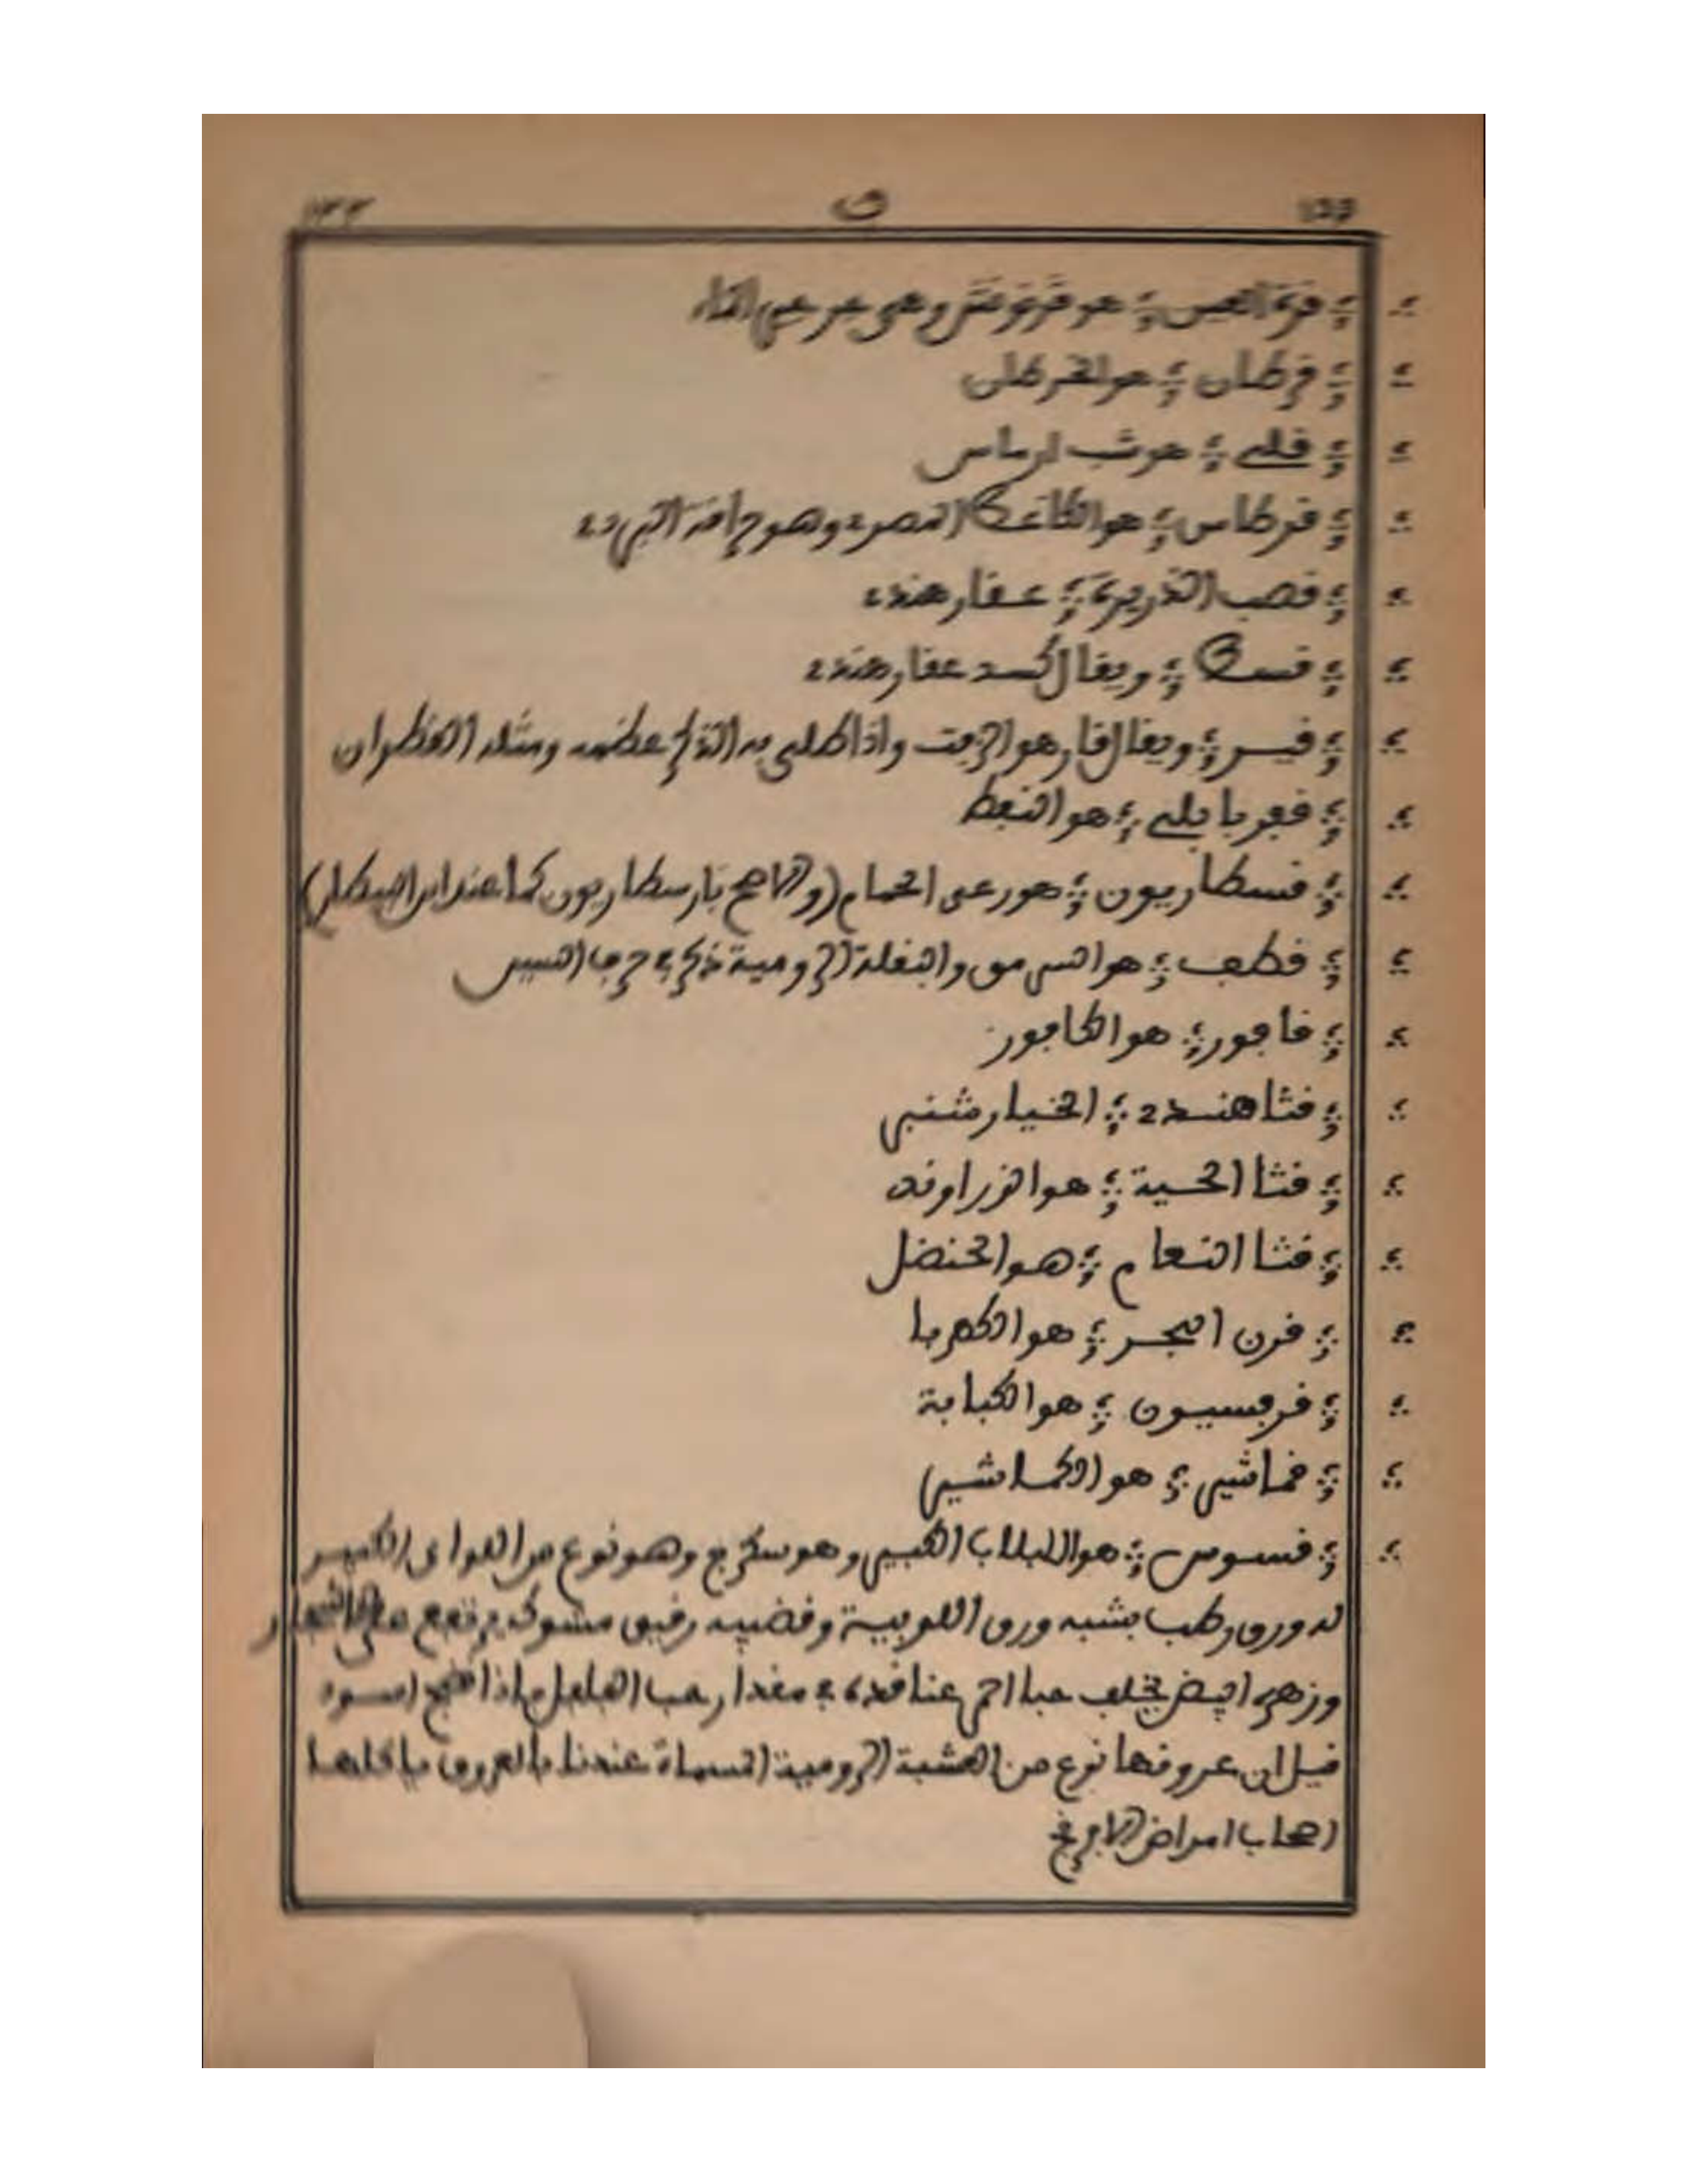 ق
قرة العين : هو قرنونش وهي جرجير الماء
قرطان : هو الخرطان
قلي : هو شب
قرطاس : هو الكاغط المصري وهو حرافة البردي
قصب الذريرة : عقار هندي
قسط : ويقال كسد عقار هندي
قير : ويقال قار هو الزفت واذا طلي به الذكر عظمه ومثله القطران
قفر بابلي : هو النفط
قسطاريون : هو رعي الحمام (والاصح بارسطاريون كما عند ابن البيطار)
قطف : هو السرمق والبقلة الرومية ذكر في حرف السين
قافور : هو الكافور
قثا هندي : الخيارشنبر
قثا الحية : هو الزراوند
قثا النعام : هو الحنضل
قرن البحر : هو الكهربا
قرفسيون : هو الكبابة
قماشير : هو الكماشير
قسوس : هو اللبلاب الكبير وهو نوع من اللواي الكبير
له ورق رطب يشبه ورق اللوبية وقضيبه رقيق مشوك يرتفع على الاشجار
وزهره ابيض يخلف حبا احمر عناقده في مقدار حب الفلفل فاذا نضج اسود
قيل ان عروقها نوع من العشبة الرومية المسماة عندنا بالعروق ياكلها
اصحاب امراض الافرنج